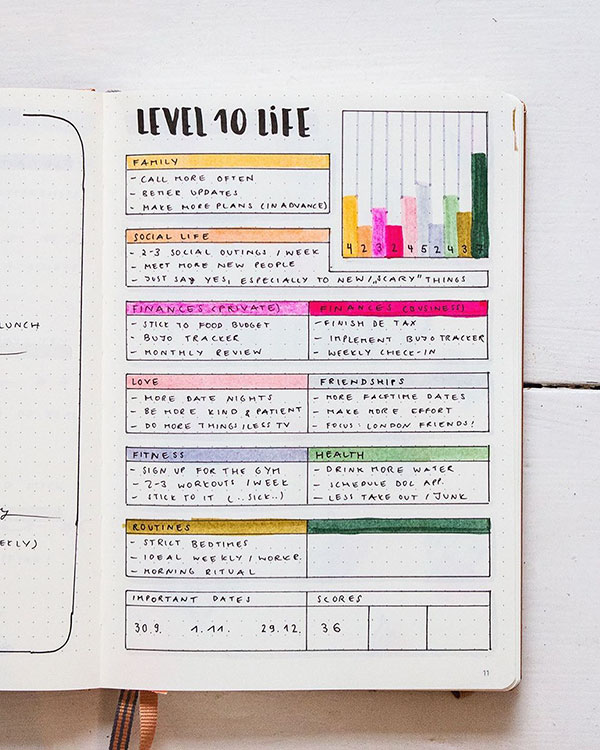 LEVEL 10 LIFE
FAMILY
- CALL MORE OFTEN
- BETTER UPDATES
- MAKE MORE PLANS (IN ADVANCE)
4 2 3 2 4 5 2 4 3 7
SOCIAL LIFE
- 2-3 SOCIAL OUTINGS / WEEK
- MEET MORE NEW PEOPLE
- JUST SAY YES, ESPECIALLY TO NEW / „SCARY" THINGS
FINANCES (PRIVATE)
- STICK TO FOOD BUDGET
- BUJO TRACKER
- MONTHLY REVIEW
FINANCES (BUSINESS)
- FINISH DE TAX
- IMPLEMENT BUJO TRACKER
- WEEKLY CHECK-IN
LUNCH
LOVE
- MORE DATE NIGHTS
- BE MORE KIND & PATIENT
- DO MORE THINGS / LESS TV
FRIENDSHIPS
- MORE FACETIME DATES
- MAKE MORE EFFORT
- FOCUS: LONDON FRIENDS!
FITNESS
- SIGN UP FOR THE GYM
- 2-3 WORKOUTS / WEEK
- STICK TO IT (..SICK..)
HEALTH
- DRINK MORE WATER
- SCHEDULE DOC APP.
- LESS TAKE OUT / JUNK
ROUTINES
- STRICT BEDTIMES
- IDEAL WEEKLY / WORKR.
- MORNING RITUAL
EKLY)
IMPORTANT DATES
30.9. 1.11. 29.12.
SCORES
36
11